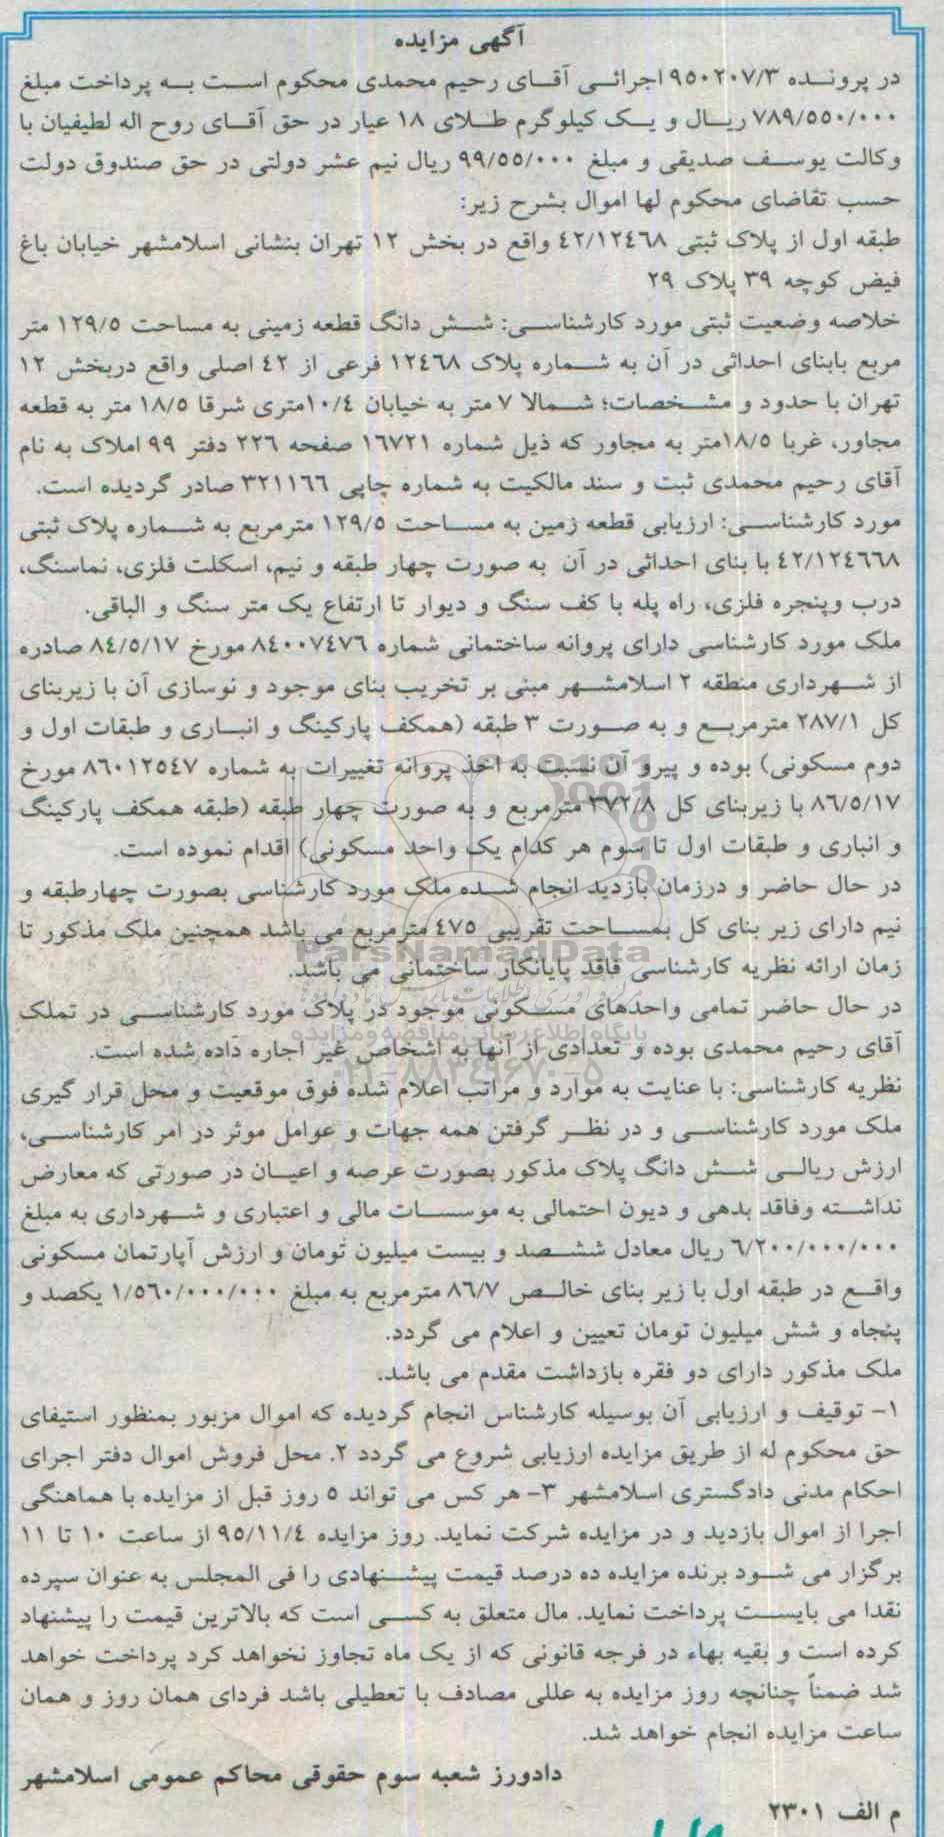 آگهی مزایده
در پرونده ۹۵۰۲۰۷/۳ اجرائی آقای رحیم محمدی محکوم است به پرداخت مبلغ
۷۸۹/۵۵۰/۰۰۰ ریال و یک کیلوگرم طلای ۱۸ عیار در حق آقای روح اله لطیفیان با
وکالت یوسف صدیقی و مبلغ ۹۹/۵۵/۰۰۰ ریال نیم عشر دولتی در حق صندوق دولت
حسب تقاضای محکوم لها اموال بشرح زیر:
طبقه اول از پلاک ثبتی ۴۲/۱۲۴۶۸ واقع در بخش ۱۲ تهران بنشانی اسلامشهر خیابان باغ
فیض کوچه ۳۹ پلاک ۲۹
خلاصه وضعیت ثبتی مورد کارشناسی: شش دانگ قطعه زمینی به مساحت ۱۲۹/۵ متر
مربع بابنای احداثی در آن به شماره پلاک ۱۲۴۶۸ فرعی از ۴۲ اصلی واقع دربخش ۱۲
تهران با حدود و مشخصات؛ شمالا ۷ متر به خیابان ۱۰/۴متری شرقا ۱۸/۵ متر به قطعه
مجاور، غربا ۱۸/۵متر به مجاور که ذیل شماره ۱۶۷۲۱ صفحه ۲۲۶ دفتر ۹۹ املاک به نام
آقای رحیم محمدی ثبت و سند مالکیت به شماره چاپی ۳۲۱۱۶۶ صادر گردیده است.
مورد کارشناسی: ارزیابی قطعه زمین به مساحت ۱۲۹/۵ مترمربع به شماره پلاک ثبتی
۴۲/۱۲۴۶۶۸ با بنای احداثی در آن به صورت چهار طبقه و نیم، اسکلت فلزی، نماسنگ،
درب وپنجره فلزی، راه پله با کف سنگ و دیوار تا ارتفاع یک متر سنگ و الباقی.
ملک مورد کارشناسی دارای پروانه ساختمانی شماره ۸۴۰۰۷۴۷۶ مورخ ۸۴/۵/۱۷ صادره
از شهرداری منطقه ۲ اسلامشهر مبنی بر تخریب بنای موجود و نوسازی آن با زیربنای
کل ۲۸۷/۱ مترمربع و به صورت ۳ طبقه (همکف پارکینگ و انباری و طبقات اول و
دوم مسکونی) بوده و پیرو آن نسبت به اخذ پروانه تغییرات به شماره ۸۶۰۱۲۵۴۷ مورخ
۸۶/۵/۱۷ با زیربنای کل ۳۷۲/۸ مترمربع و به صورت چهار طبقه (طبقه همکف پارکینگ
و انباری و طبقات اول تا سوم هر کدام یک واحد مسکونی) اقدام نموده است.
در حال حاضر و درزمان بازدید انجام شده ملک مورد کارشناسی بصورت چهارطبقه و
نیم دارای زیر بنای کل بمساحت تقریبی ۴۷۵ مترمربع می باشد همچنین ملک مذکور تا
زمان ارائه نظریه کارشناسی فاقد پایانکار ساختمانی می باشد.
در حال حاضر تمامی واحدهای مسکونی موجود در پلاک مورد کارشناسی در تملک
آقای رحیم محمدی بوده و تعدادی از آنها به اشخاص غیر اجاره داده شده است.
نظریه کارشناسی: با عنایت به موارد و مراتب اعلام شده فوق موقعیت و محل قرار گیری
ملک مورد کارشناسی و در نظر گرفتن همه جهات و عوامل موثر در امر کارشناسی،
ارزش ریالی شش دانگ پلاک مذکور بصورت عرصه و اعیان در صورتی که معارض
نداشته وفاقد بدهی و دیون احتمالی به موسسات مالی و اعتباری و شهرداری به مبلغ
۶/۲۰۰/۰۰۰/۰۰۰ ریال معادل ششصد و بیست میلیون تومان و ارزش آپارتمان مسکونی
واقع در طبقه اول با زیر بنای خالص ۸۶/۷ مترمربع به مبلغ ۱/۵۶۰/۰۰۰/۰۰۰ یکصد و
پنجاه و شش میلیون تومان تعیین و اعلام می گردد.
ملک مذکور دارای دو فقره بازداشت مقدم می باشد.
۱- توقیف و ارزیابی آن بوسیله کارشناس انجام گردیده که اموال مزبور بمنظور استیفای
حق محکوم له از طریق مزایده ارزیابی شروع می گردد ۲. محل فروش اموال دفتر اجرای
احکام مدنی دادگستری اسلامشهر ۳- هر کس می تواند ۵ روز قبل از مزایده با هماهنگی
اجرا از اموال بازدید و در مزایده شرکت نماید. روز مزایده ۹۵/۱۱/۴ از ساعت ۱۰ تا ۱۱
برگزار می شود برنده مزایده ده درصد قیمت پیشنهادی را فی المجلس به عنوان سپرده
نقدا می بایست پرداخت نماید. مال متعلق به کسی است که بالاترین قیمت را پیشنهاد
کرده است و بقیه بهاء در فرجه قانونی که از یک ماه تجاوز نخواهد کرد پرداخت خواهد
شد ضمناً چنانچه روز مزایده به عللی مصادف با تعطیلی باشد فردای همان روز و همان
ساعت مزایده انجام خواهد شد.
دادورز شعبه سوم حقوقی محاکم عمومی اسلامشهر
م الف ۲۳۰۱
ParsNamadData
پایگاه اطلاع رسانی مناقصه و مزایده
۰۲۱-۸۸۳۴۹۶۷۰-۵